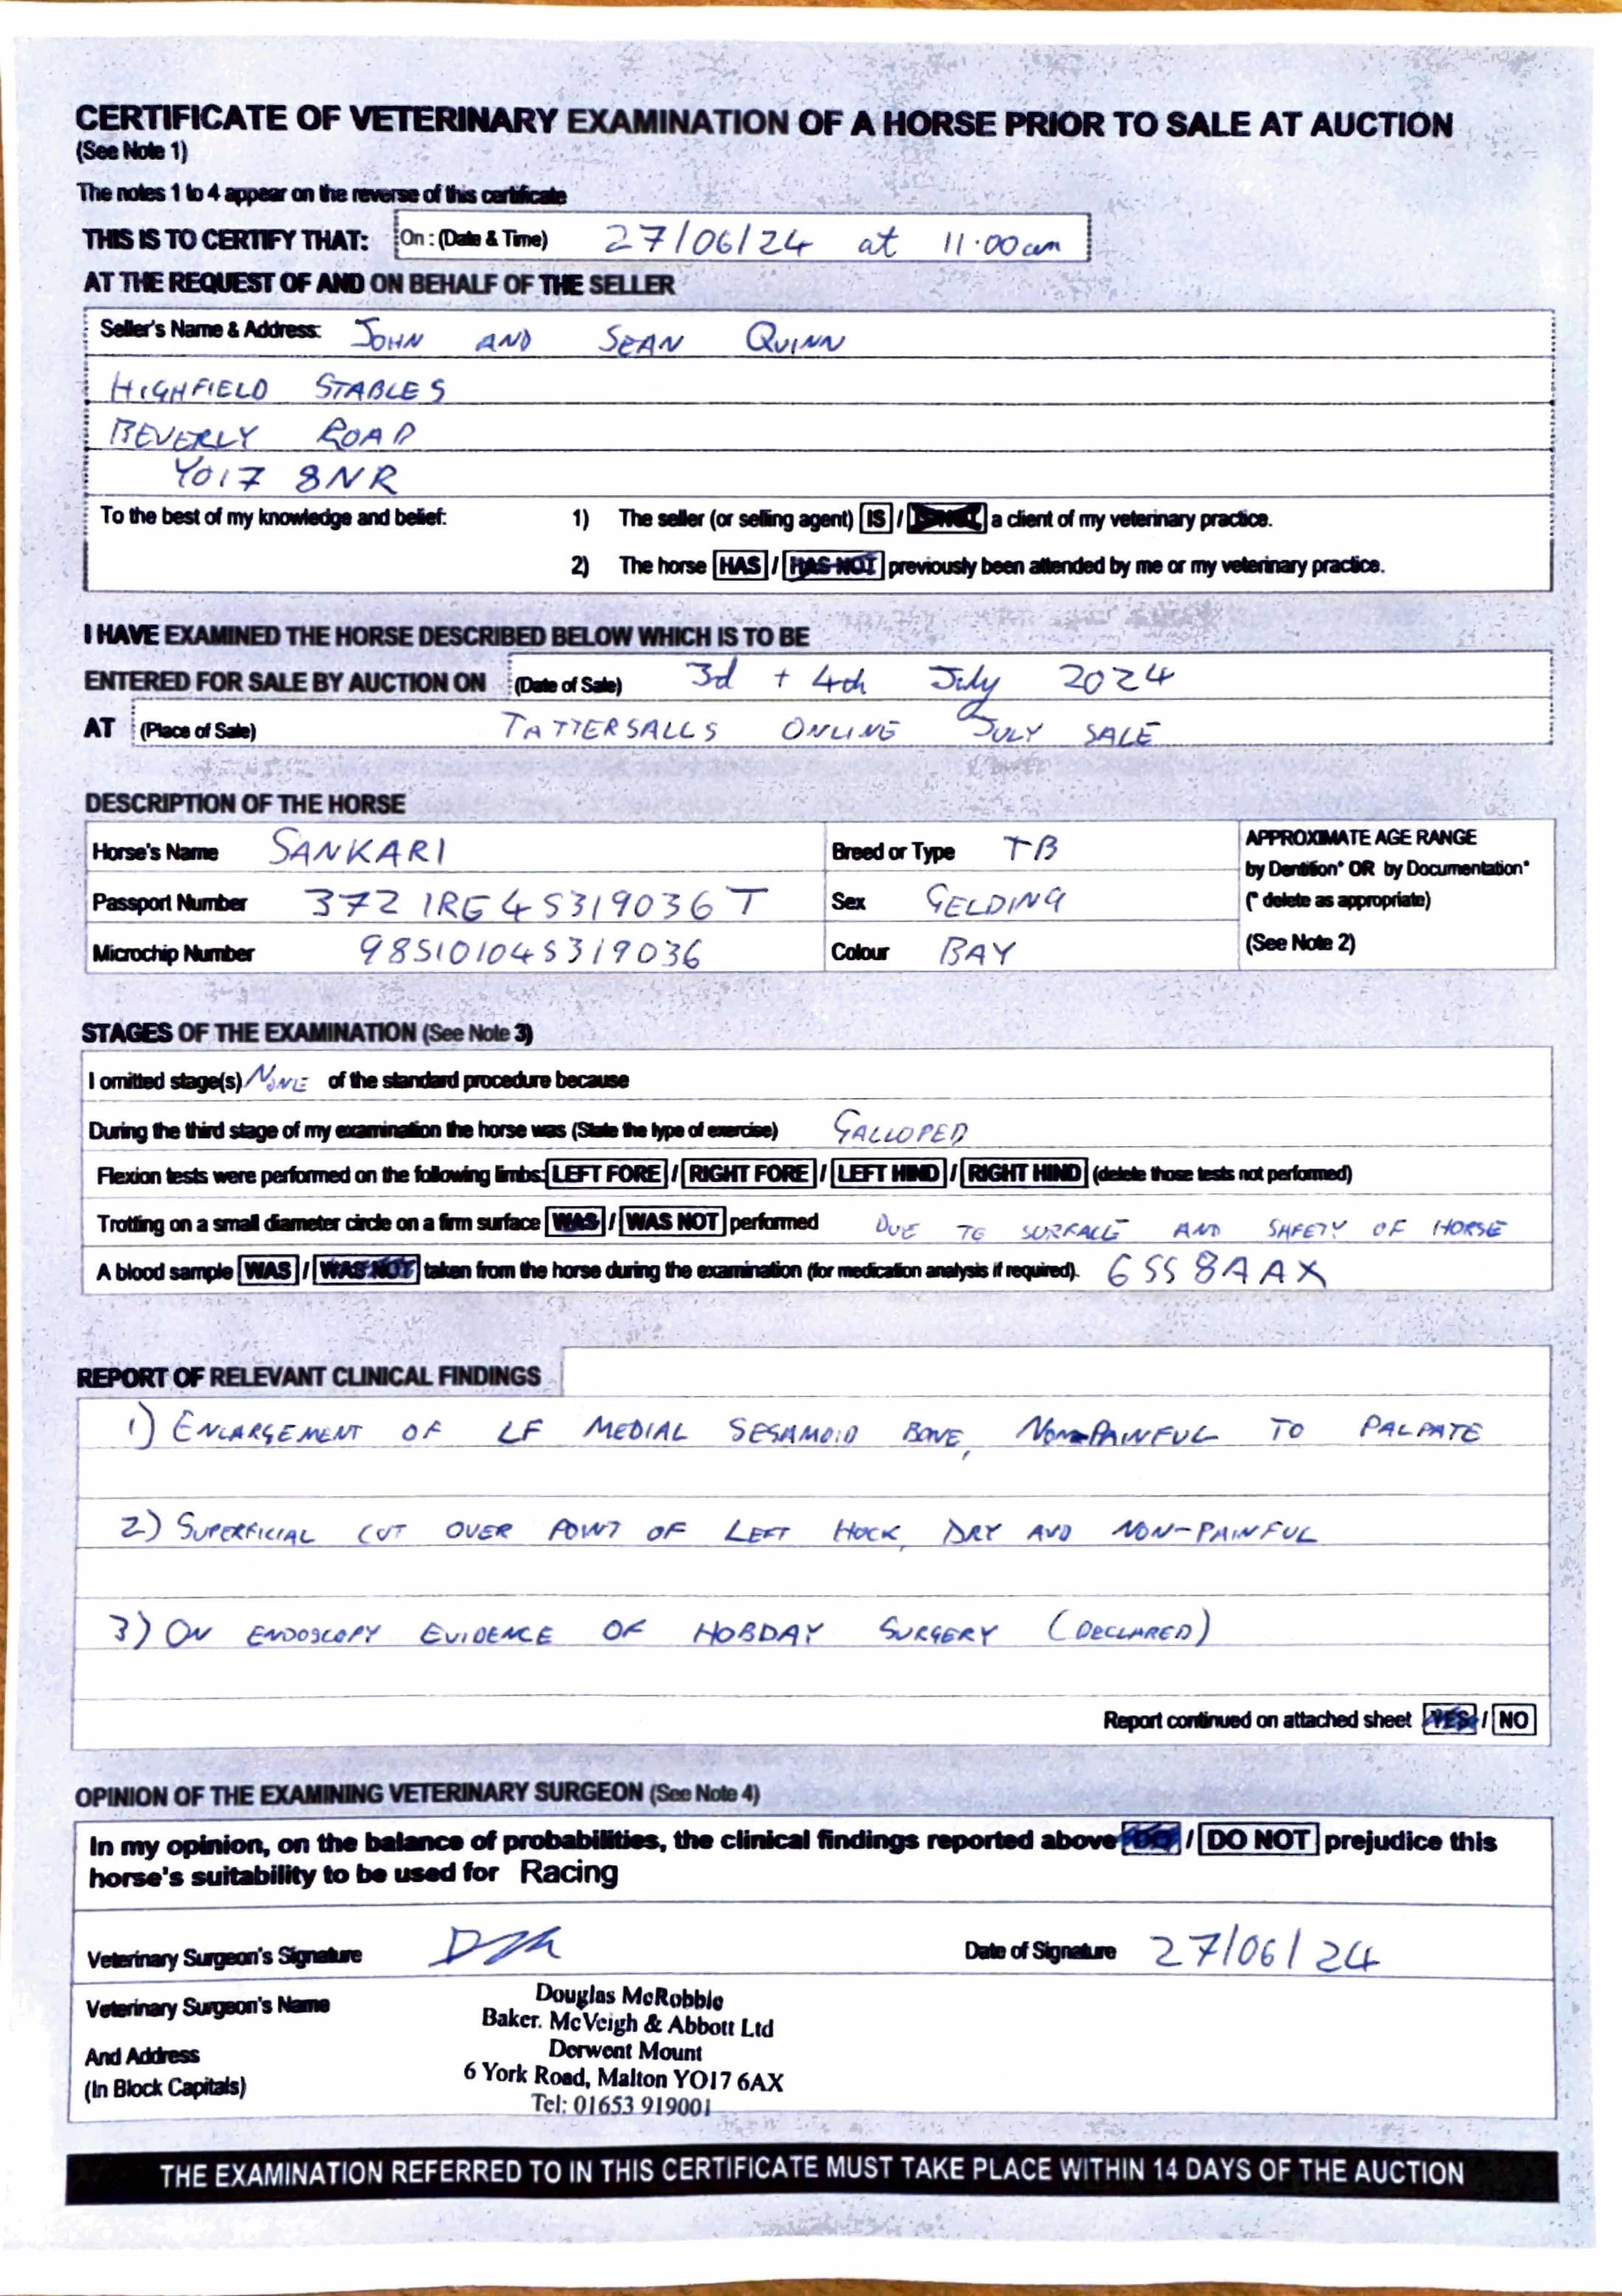 CERTIFICATE OF VETERINARY EXAMINATION OF A HORSE PRIOR TO SALE AT AUCTION
(See Note 1)
The notes 1 to 4 appear on the reverse of this certificate
THIS IS TO CERTIFY THAT: On : (Date & Time) 27/06/24 at 11·00am
AT THE REQUEST OF AND ON BEHALF OF THE SELLER
Seller's Name & Address: JOHN AND SEAN QUINN
HIGHFIELD STABLES
BEVERLY ROAD
YO17 8NR
To the best of my knowledge and belief: 1) The seller (or selling agent) IS / IS NOT a client of my veterinary practice.
2) The horse HAS / HAS NOT previously been attended by me or my veterinary practice.
I HAVE EXAMINED THE HORSE DESCRIBED BELOW WHICH IS TO BE
ENTERED FOR SALE BY AUCTION ON (Date of Sale) 3d + 4th July 2024
AT (Place of Sale) TATTERSALLS ONLINE JULY SALE
DESCRIPTION OF THE HORSE
Horse's Name SANKARI Breed or Type TB APPROXIMATE AGE RANGE
by Dentition* OR by Documentation*
Passport Number 372 IRE 45319036 T Sex GELDING (* delete as appropriate)
Microchip Number 985101045319036 Colour BAY (See Note 2)
STAGES OF THE EXAMINATION (See Note 3)
I omitted stage(s) NONE of the standard procedure because
During the third stage of my examination the horse was (State the type of exercise) GALLOPED
Flexion tests were performed on the following limbs: LEFT FORE / RIGHT FORE / LEFT HIND / RIGHT HIND (delete those tests not performed)
Trotting on a small diameter circle on a firm surface WAS / WAS NOT performed DUE TO SURFACE AND SAFETY OF HORSE
A blood sample WAS / WAS NOT taken from the horse during the examination (for medication analysis if required). 6558AAX
REPORT OF RELEVANT CLINICAL FINDINGS
1) ENLARGEMENT OF LF MEDIAL SESAMOID BONE, NON-PAINFUL TO PALPATE
2) SUPERFICIAL CUT OVER POINT OF LEFT HOCK, DRY AND NON-PAINFUL
3) ON ENDOSCOPY EVIDENCE OF HOBDAY SURGERY (DECLARED)
Report continued on attached sheet YES / NO
OPINION OF THE EXAMINING VETERINARY SURGEON (See Note 4)
In my opinion, on the balance of probabilities, the clinical findings reported above DO / DO NOT prejudice this
horse's suitability to be used for Racing
Veterinary Surgeon's Signature Date of Signature 27/06/24
Veterinary Surgeon's Name Douglas McRobbie
Baker. McVeigh & Abbott Ltd
And Address Derwent Mount
(In Block Capitals) 6 York Road, Malton YO17 6AX
Tel: 01653 919001
THE EXAMINATION REFERRED TO IN THIS CERTIFICATE MUST TAKE PLACE WITHIN 14 DAYS OF THE AUCTION